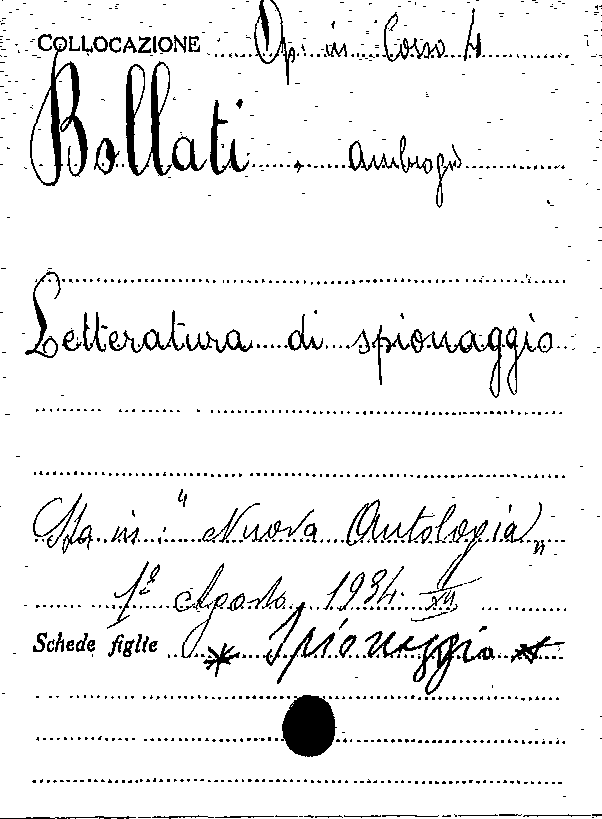 COLLOCAZIONE Op. in Corso 4
Bollati. Ambrogio
Letteratura di spionaggio
Sta in: "Nuova Antologia"
1º Agosto 1934 XII
Schede figlie * Spionaggio *